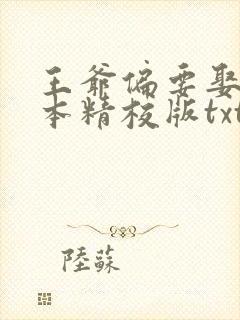 王爷偏要娶
本精校版txt
陸蘇